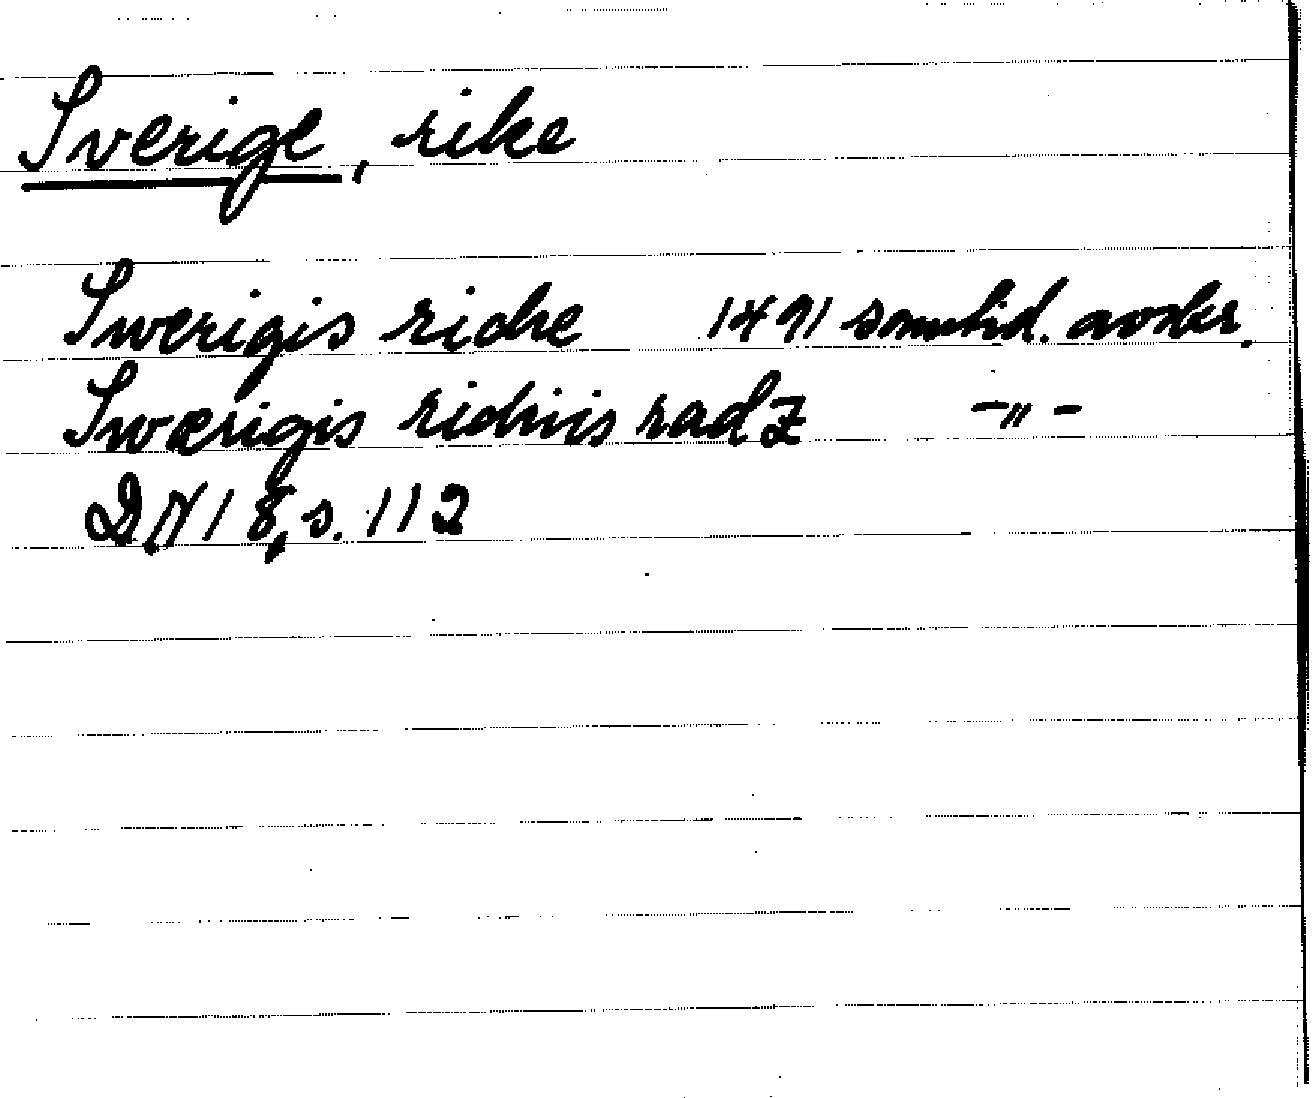 Sverige, rike
Swerigis riche 1471 samtid. avskr.
Swærigis richiis radz -„-
DN 18, s. 112